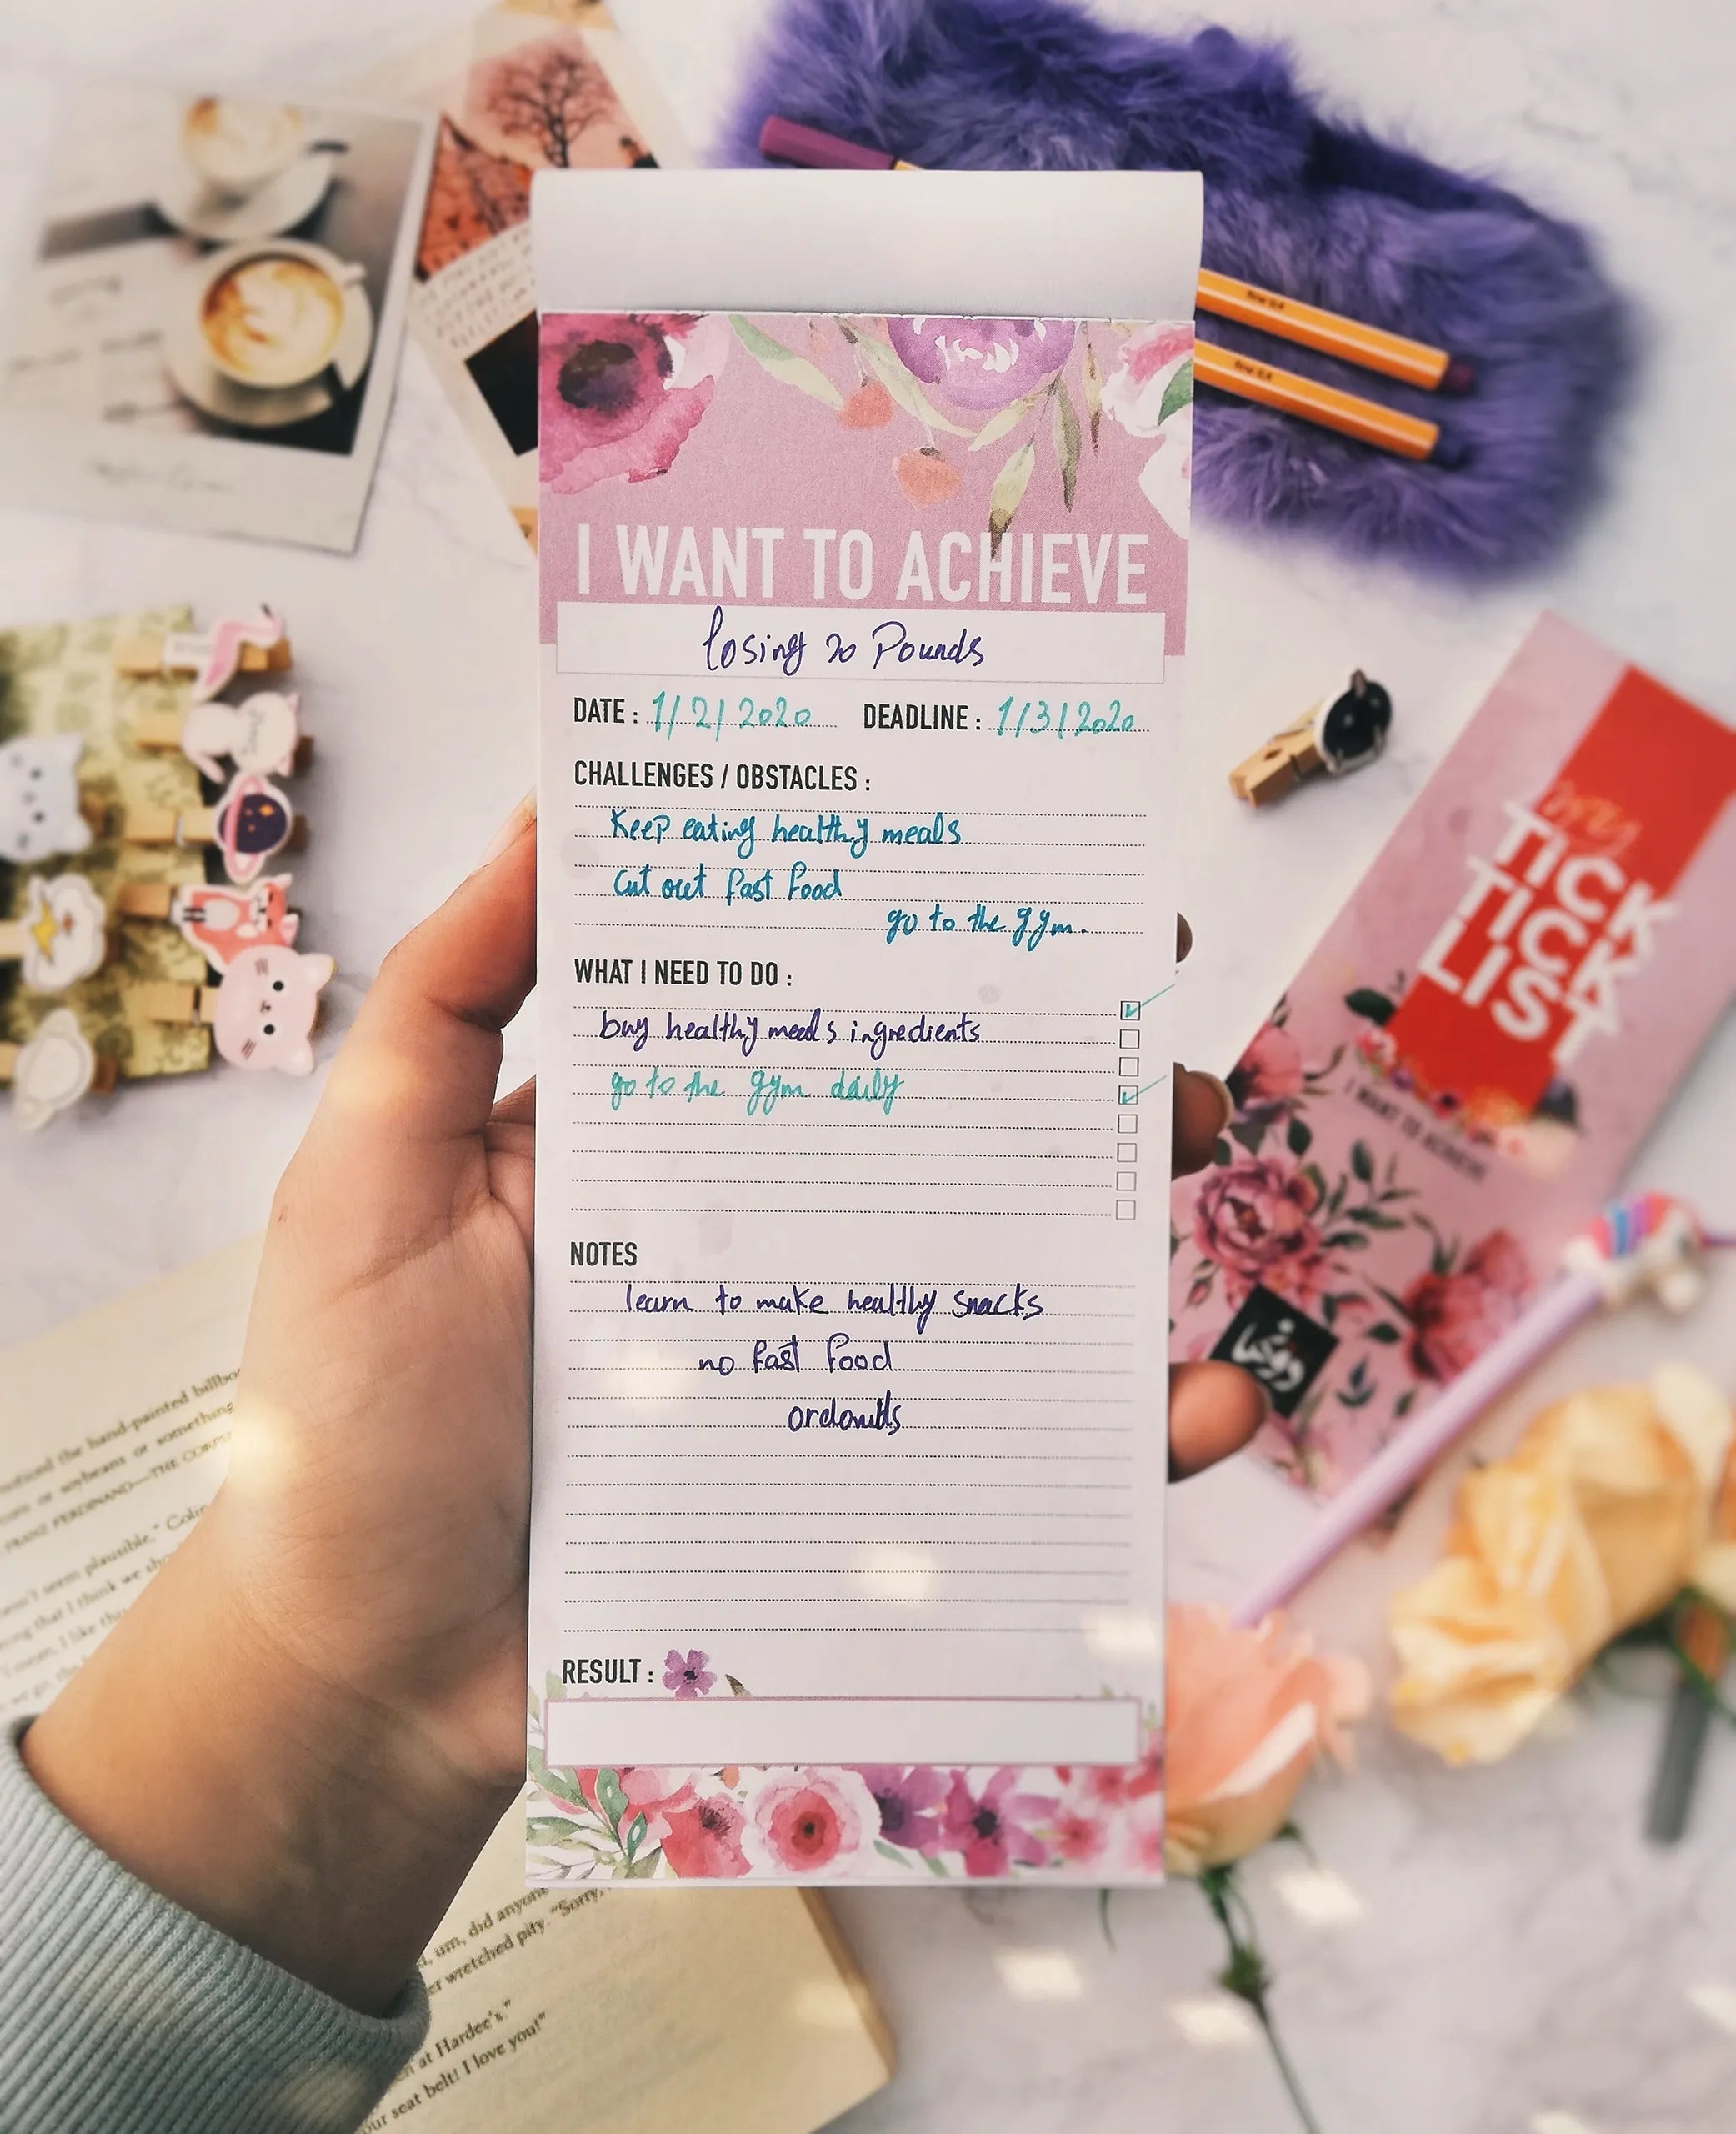 fine 0.4
fine 0.4
I WANT TO ACHIEVE
losing 20 Pounds
DATE : 1/2/2020 DEADLINE : 1/3/2020
CHALLENGES / OBSTACLES :
Keep eating healthy meals
Cut out fast food
go to the gym.
WHAT I NEED TO DO :
buy healthy meals ingredients
go to the gym daily
NOTES
learn to make healthy snacks
no fast food
RESULT :
my
TICK
TICK
LIST
I WANT TO ACHIEVE
noticed the hand-painted
or soybeans or something
FRANZ FERDINAND—THE
seem plausible."
that I think we
I like
um, did anyone
wretched pity. "Sorry,
at Hardee's."
seat belt! I love you!"